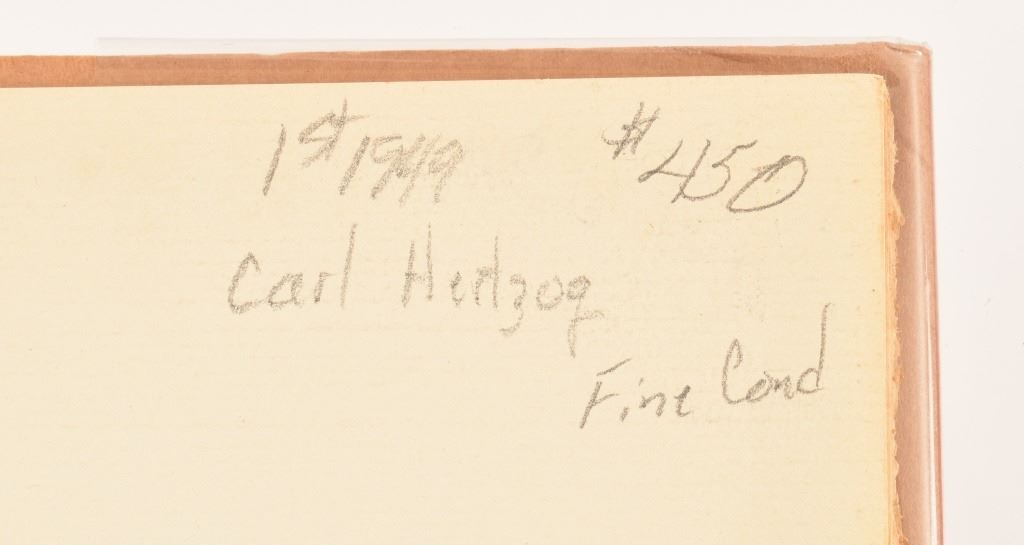 1st 1949 #450
Carl Hertzog
Fine Cond